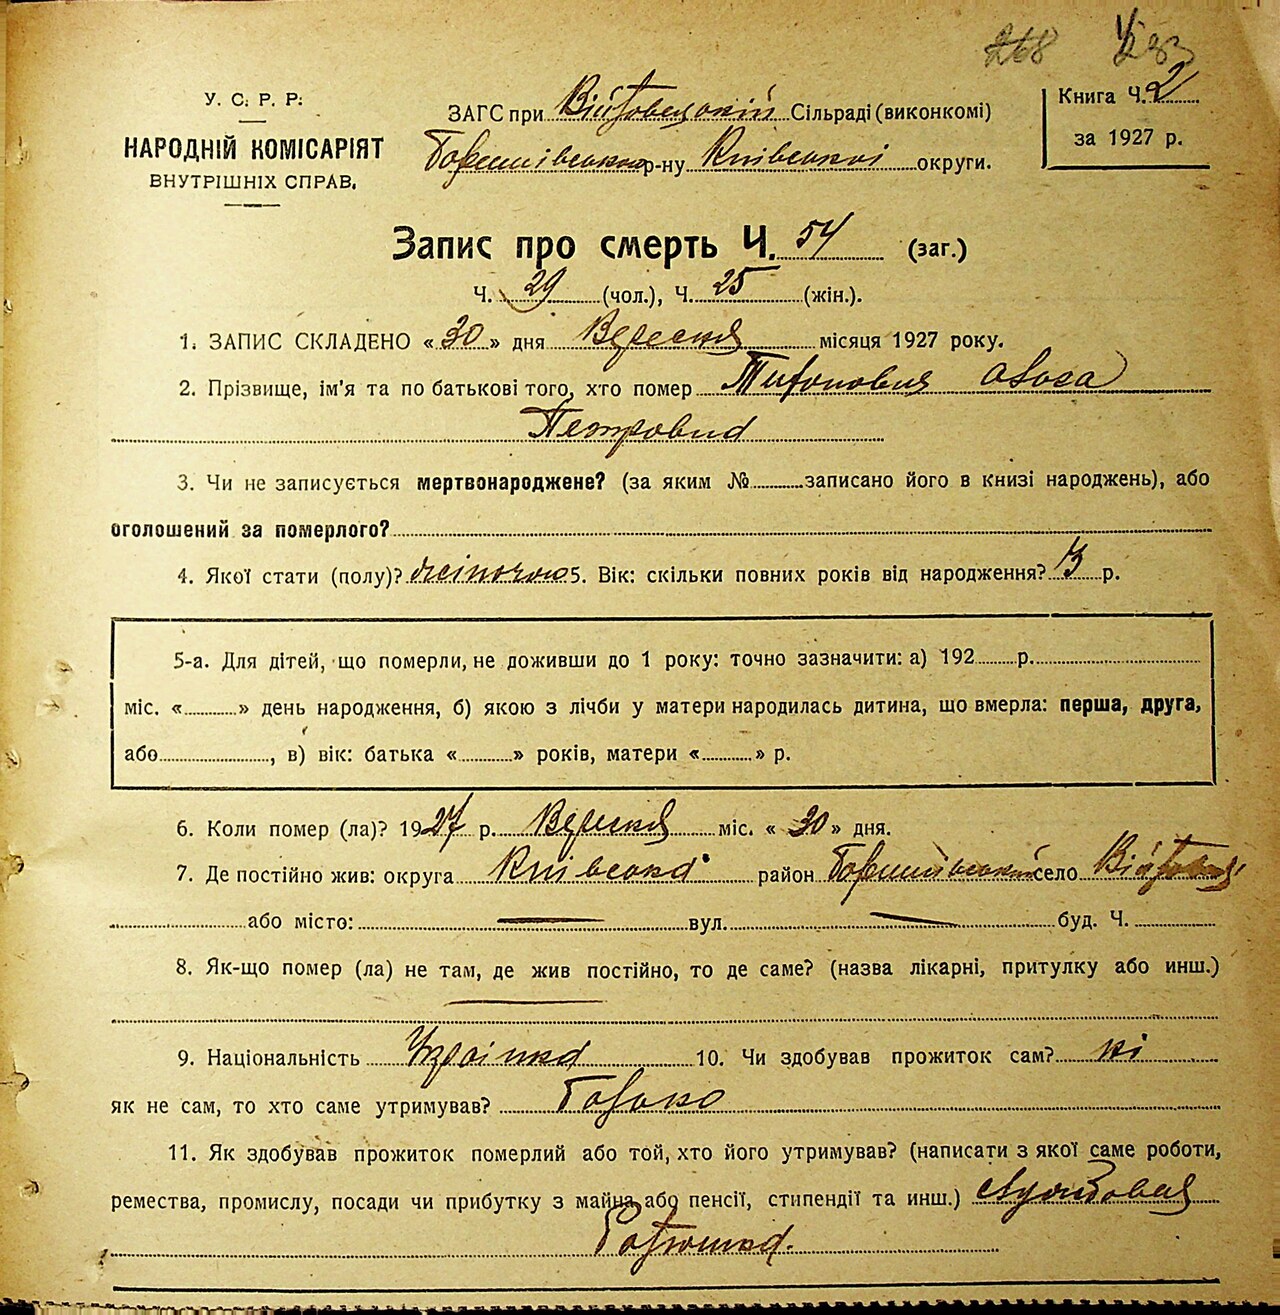 268
У. С. Р. Р.
НАРОДНІЙ КОМІСАРІЯТ
ВНУТРІШНІХ СПРАВ.
ЗАГС при Війтовецькій Сільраді (виконкомі)
Баришівського р-ну Київської округи.
Книга Ч. 2
за 1927 р.
Запис про смерть Ч. 54 (заг.)
Ч. 29 (чол.), Ч. 25 (жін.).
1. ЗАПИС СКЛАДЕНО «30» дня Вересня місяця 1927 року.
2. Прізвище, ім'я та по батькові того, хто помер
3. Чи не записується мертвонароджене? (за яким № записано його в книзі народжень), або
оголошений за померлого?
4. Якої стати (полу)? жіночою 5. Вік: скільки повних років від народження? р.
5-а. Для дітей, що померли, не доживши до 1 року: точно зазначити: а) 192 р.
міс. « » день народження, б) якою з лічби у матери народилась дитина, що вмерла: перша, друга,
або , в) вік: батька « » років, матери « » р.
6. Коли помер (ла)? 1927 р. Вересня міс. «30» дня.
7. Де постійно жив: округа Київська район Баришівський село
або місто: — вул. — буд. Ч.
8. Як-що помер (ла) не там, де жив постійно, то де саме? (назва лікарні, притулку або инш.)
—
9. Національність Українка 10. Чи здобував прожиток сам? ні
як не сам, то хто саме утримував? Батько
11. Як здобував прожиток померлий або той, хто його утримував? (написати з якої саме роботи,
ремества, промислу, посади чи прибутку з майна або пенсії, стипендії та инш.)